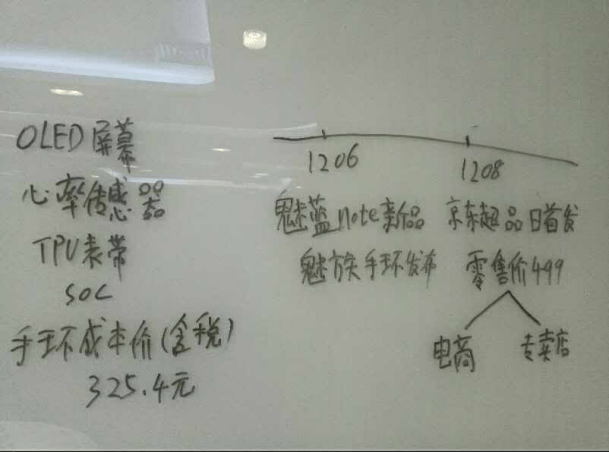 OLED屏幕
心率传感器
TPU表带
SOC
手环成本价(含税)
325.4元
1206
1208
魅蓝note新品
京东超品日首发
魅族手环发布
零售价499
电商
专卖店